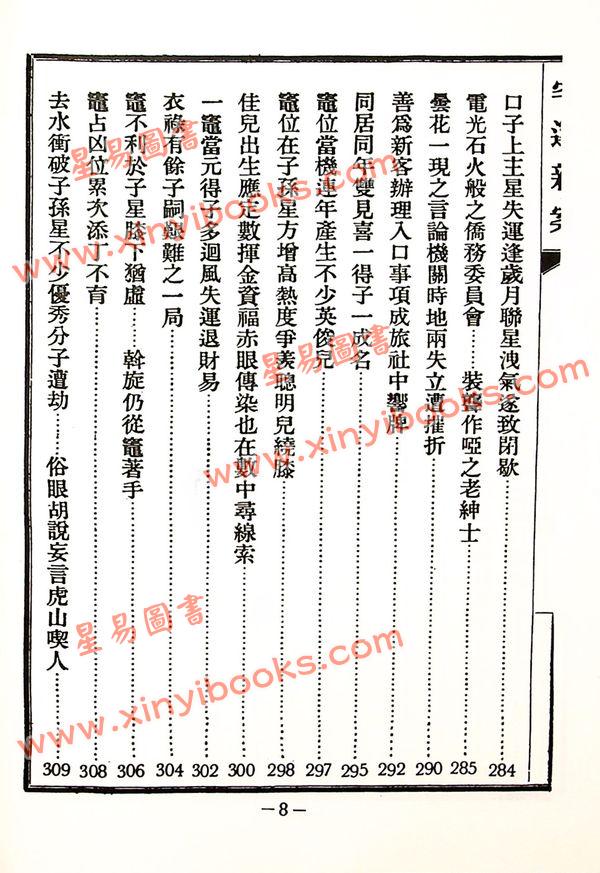 宅運新案
口子上主星失運逢歲月聯星洩氣遂致閉歇 284
電光石火般之僑務委員會……裝聾作啞之老紳士 285
曇花一現之言論機關時地兩失立遭摧折 290
善爲新客辦理入口事項成旅社中響牌 292
同居同年雙見喜一得子一成名 295
竈位當機連年產生不少英俊兒 297
竈位在子孫星方增高熱度爭羨聰明兒繞膝 298
佳兒出生應定數揮金資福赤眼傳染也在數中尋線索 300
一竈當元得子多迴風失運退財易 302
衣祿有餘子嗣艱難之一局 304
竈不利於子星膝下猶虛……斡旋仍從竈著手 306
竈占凶位累次添丁不育 308
去水衝破子孫星不少優秀分子遭劫……俗眼胡說妄言虎山喫人 309
—8—
星易圖書
www.xinyibooks.com
星易圖書
www.xinyibooks.com
星易圖書
www.xinyibooks.com